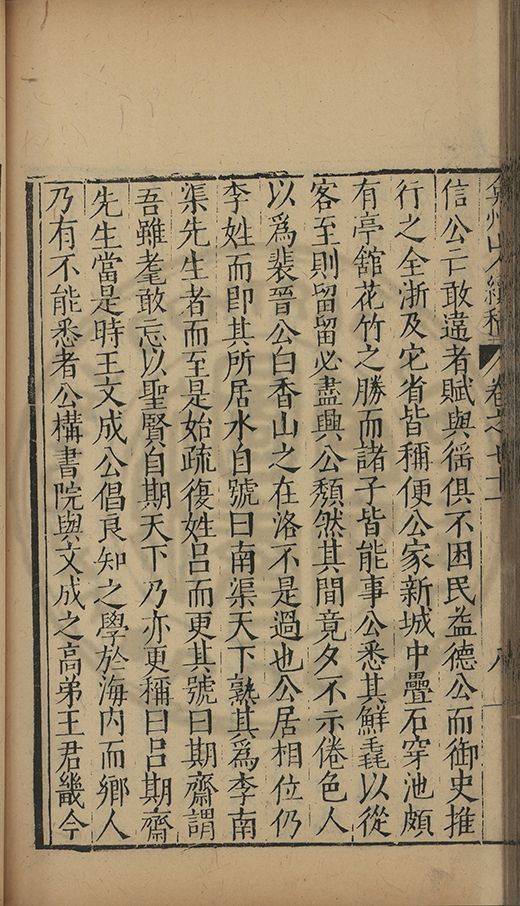 弇州山人續稿 卷之七十一 八
信公亡敢違者賦與徭俱不困民益德公而御史推
行之全浙及它省皆稱便公家新城中疊石穿池頗
有亭舘花竹之勝而諸子皆能事公悉其鮮毳以從
客至則留留必盡興公頽然其間竟夕不示倦色人
以爲裴晉公白香山之在洛不是過也公居相位仍
李姓而即其所居水自號曰南渠天下熟其爲李南
渠先生者而至是始疏復姓呂而更其號曰期齋謂
吾雖耄敢忘以聖賢自期天下乃亦更稱曰呂期齋
先生當是時王文成公倡良知之學於海内而鄉人
乃有不能悉者公構書院與文成之高弟王君畿今